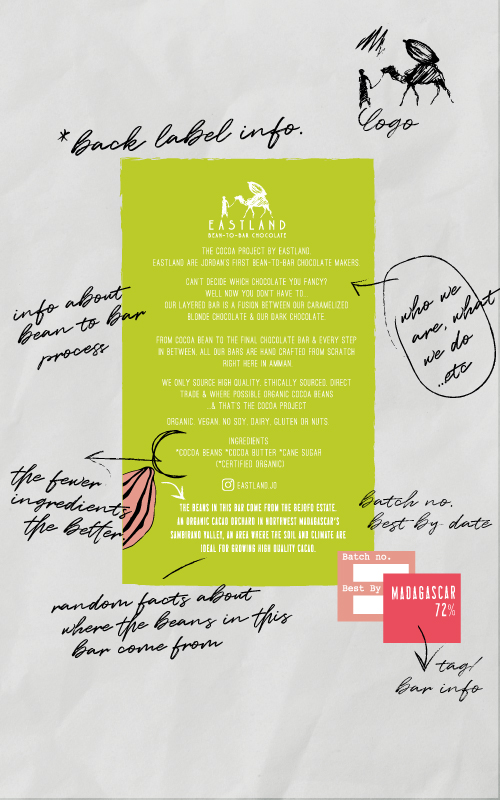 logo
*back label info.
EASTLAND
BEAN-TO-BAR CHOCOLATE
THE COCOA PROJECT BY EASTLAND.
EASTLAND ARE JORDAN'S FIRST BEAN-TO-BAR CHOCOLATE MAKERS.
CAN'T DECIDE WHICH CHOCOLATE YOU FANCY?
WELL NOW YOU DON'T HAVE TO...
OUR LAYERED BAR IS A FUSION BETWEEN OUR CARAMELIZED
BLONDE CHOCOLATE & OUR DARK CHOCOLATE.
info about
bean to bar
process
who we
are, what
we do
..etc
FROM COCOA BEAN TO THE FINAL CHOCOLATE BAR & EVERY STEP
IN BETWEEN, ALL OUR BARS ARE HAND CRAFTED FROM SCRATCH
RIGHT HERE IN AMMAN.
WE ONLY SOURCE HIGH QUALITY, ETHICALLY SOURCED, DIRECT
TRADE & WHERE POSSIBLE ORGANIC COCOA BEANS
..& THAT'S THE COCOA PROJECT
ORGANIC. VEGAN. NO SOY, DAIRY, GLUTEN OR NUTS.
INGREDIENTS
*COCOA BEANS *COCOA BUTTER *CANE SUGAR
(*CERTIFIED ORGANIC)
the fewer
ingredients
the better
EASTLAND.JO
THE BEANS IN THIS BAR COME FROM THE BEJOFO ESTATE,
AN ORGANIC CACAO ORCHARD IN NORTHWEST MADAGASCAR'S
SAMBIRANO VALLEY, AN AREA WHERE THE SOIL AND CLIMATE ARE
IDEAL FOR GROWING HIGH QUALITY CACAO.
Batch no.
Best-by-date
Batch no.
Best By
MADAGASCAR
72%
random facts about
where the beans in this
bar come from
tag/
bar info